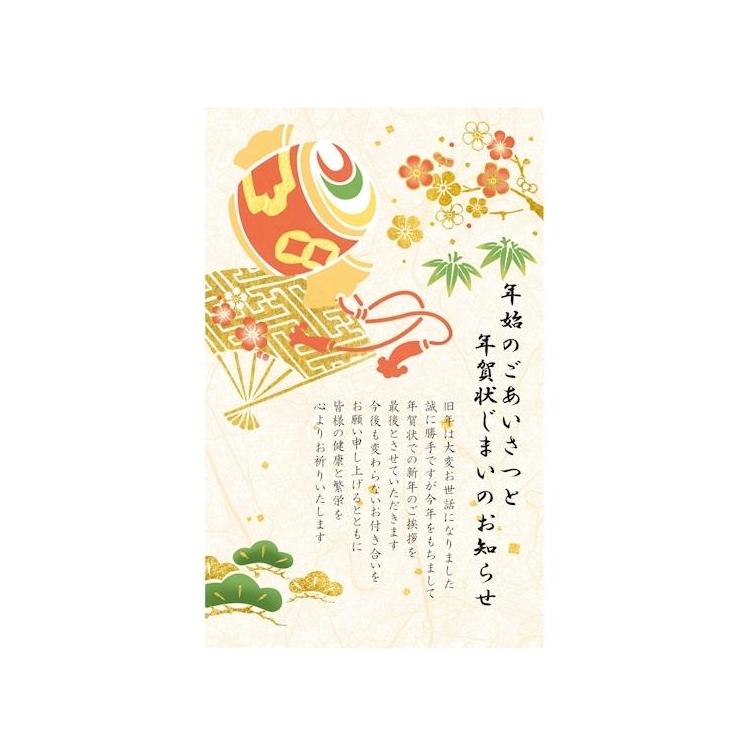 年始のごあいさつと
年賀状じまいのお知らせ
旧年は大変お世話になりました
誠に勝手ですが今年をもちまして
年賀状での新年のご挨拶を
最後とさせていただきます
今後も変わらないお付き合いを
お願い申し上げるとともに
皆様の健康と繁栄を
心よりお祈りいたします